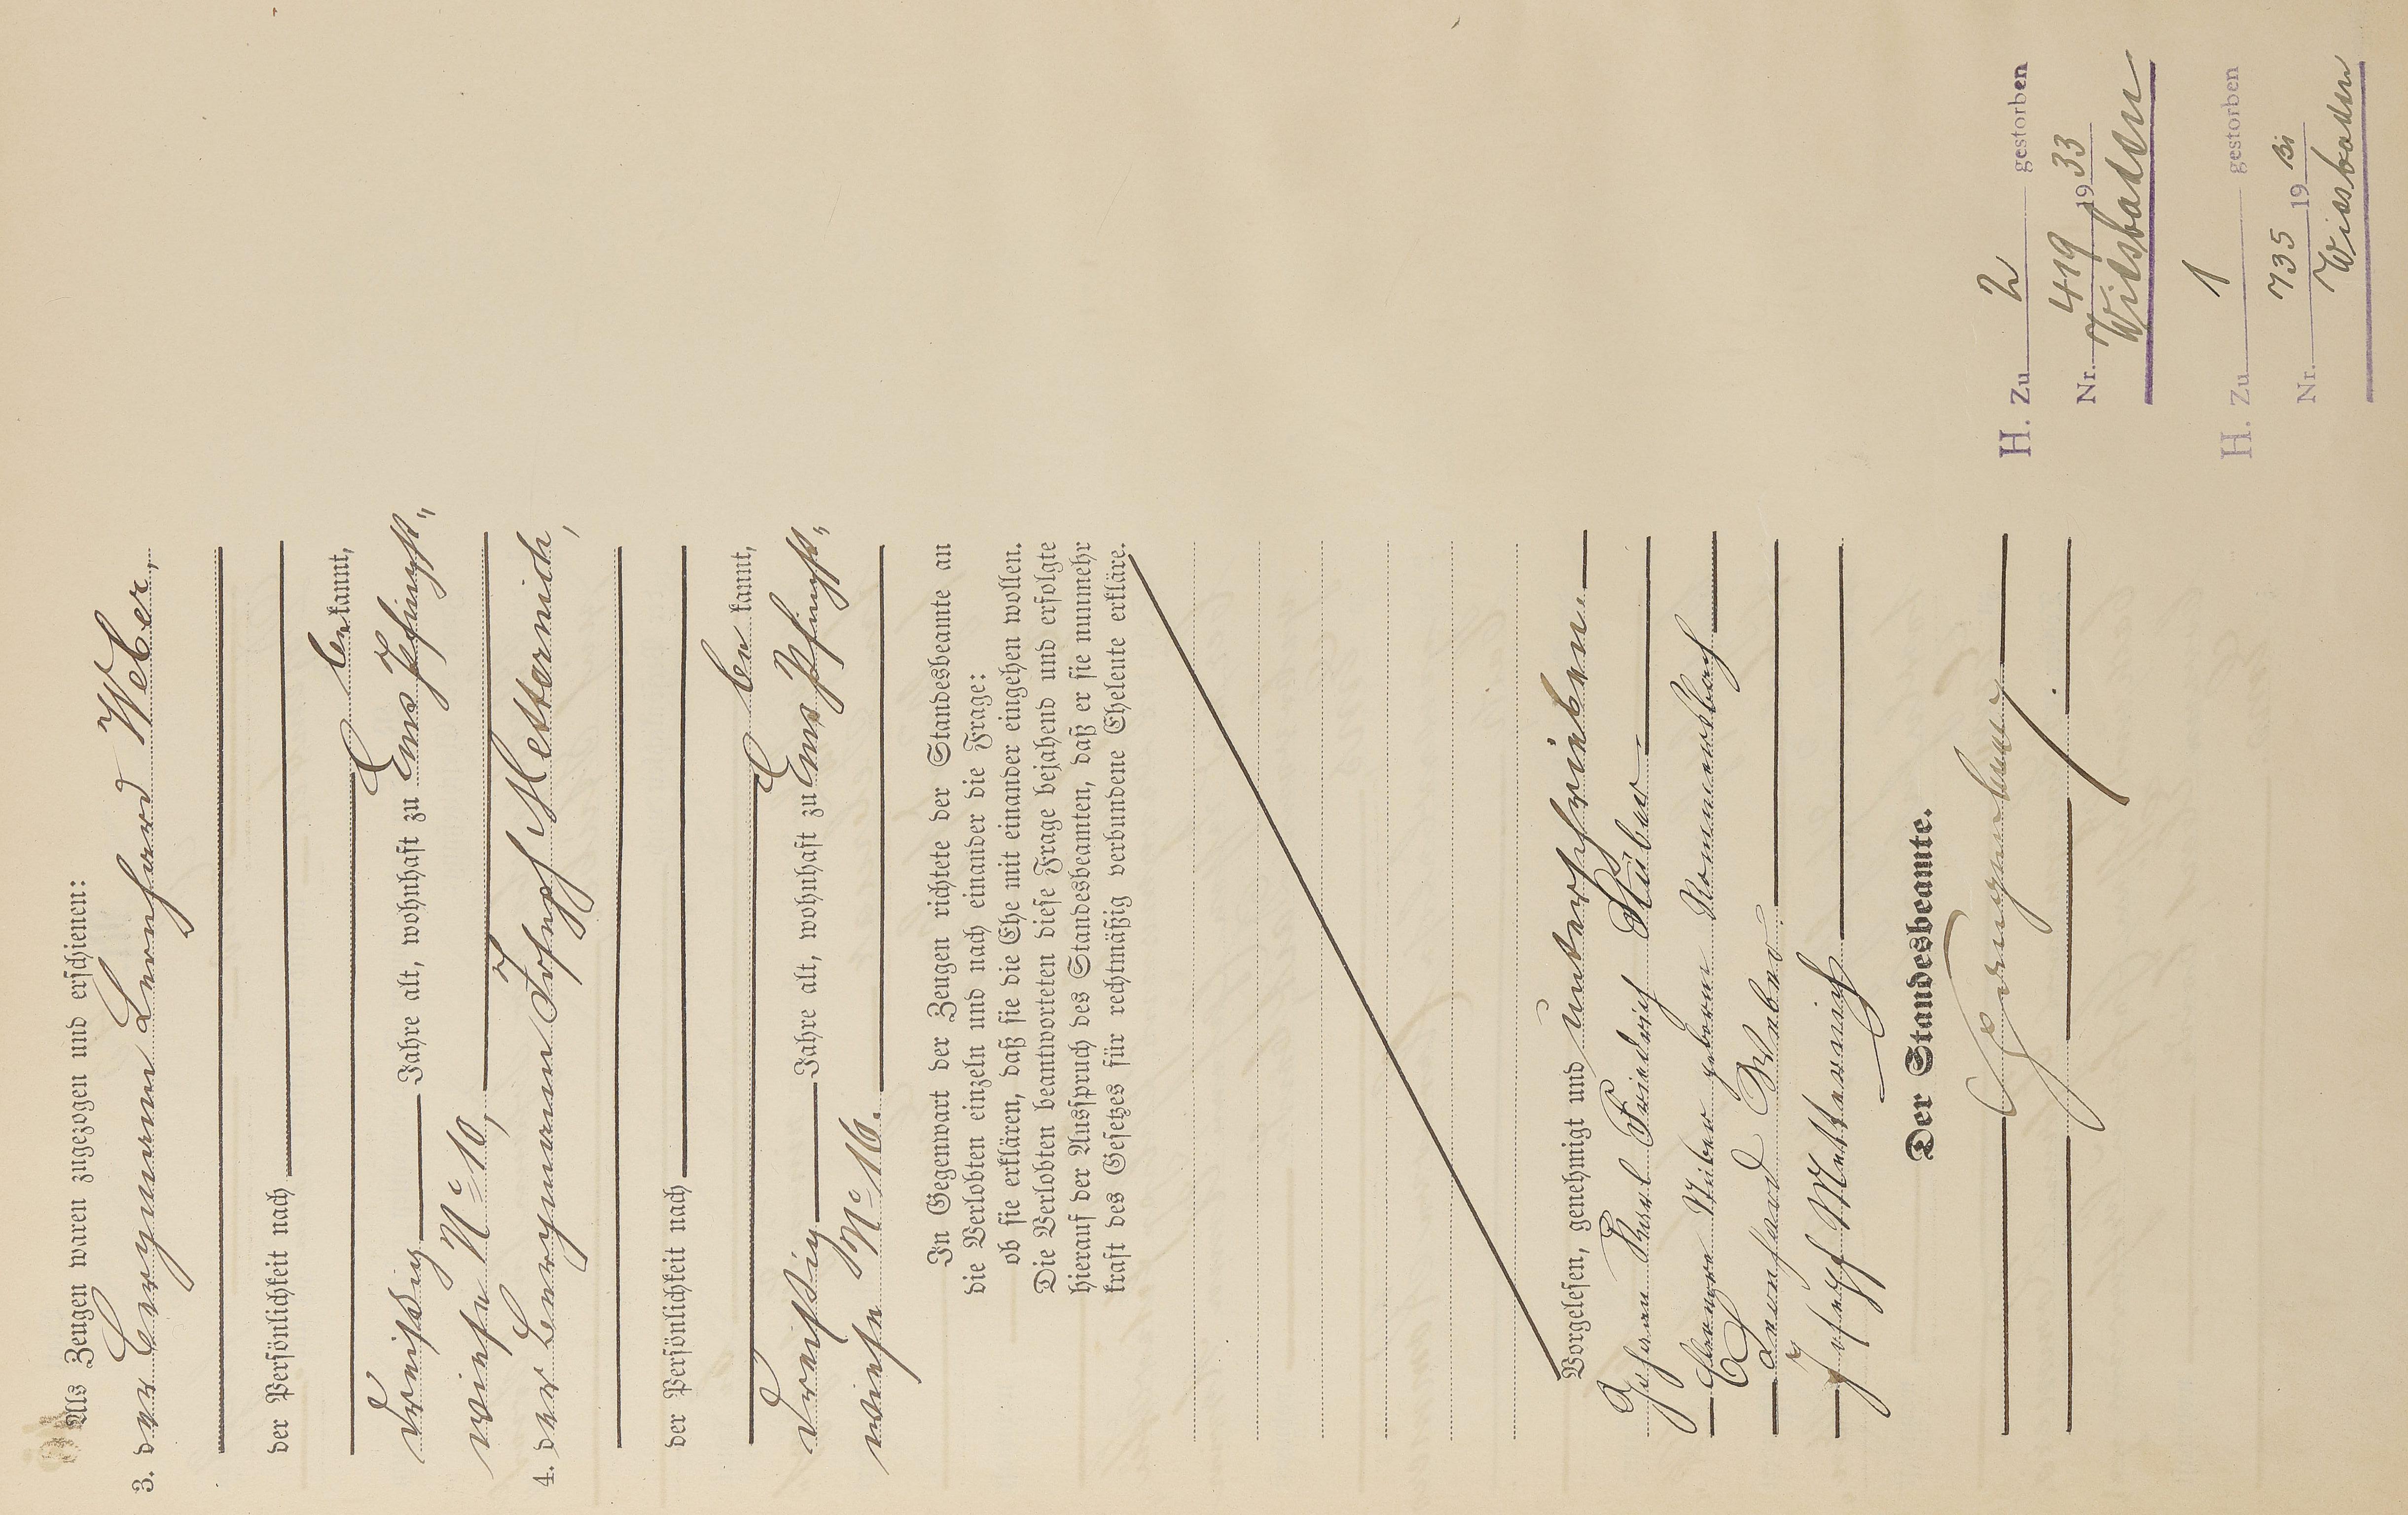 Als Zeugen waren zugezogen und erschienen:
3. der Bergmann Leonhard Weber,
der Persönlichkeit nach
be kannt,
dreißig Jahre alt, wohnhaft zu Ems Pfingst-
wiese No 10,
4. der Bergmann Joseph Metternich,
der Persönlichkeit nach
be kannt,
dreißig Jahre alt, wohnhaft zu Ems Pfingst-
wiese No 16.
In Gegenwart der Zeugen richtete der Standesbeamte an
die Verlobten einzeln und nach einander die Frage:
ob sie erklären, daß sie die Ehe mit einander eingehen wollen.
Die Verlobten beantworteten diese Frage bejahend und erfolgte
hierauf der Ausspruch des Standesbeamten, daß er sie nunmehr
kraft des Gesetzes für rechtmäßig verbundene Eheleute erkläre.
Vorgelesen, genehmigt und unterschrieben
Johann Karl Friedrich Stüber
Stüber geborne
Leonhard Weber
Joseph Metternich
Der Standesbeamte.
H. Zu 2 gestorben
Nr. 419 1933
Wiesbaden
H. Zu 1 gestorben
Nr. 735 19
Wiesbaden